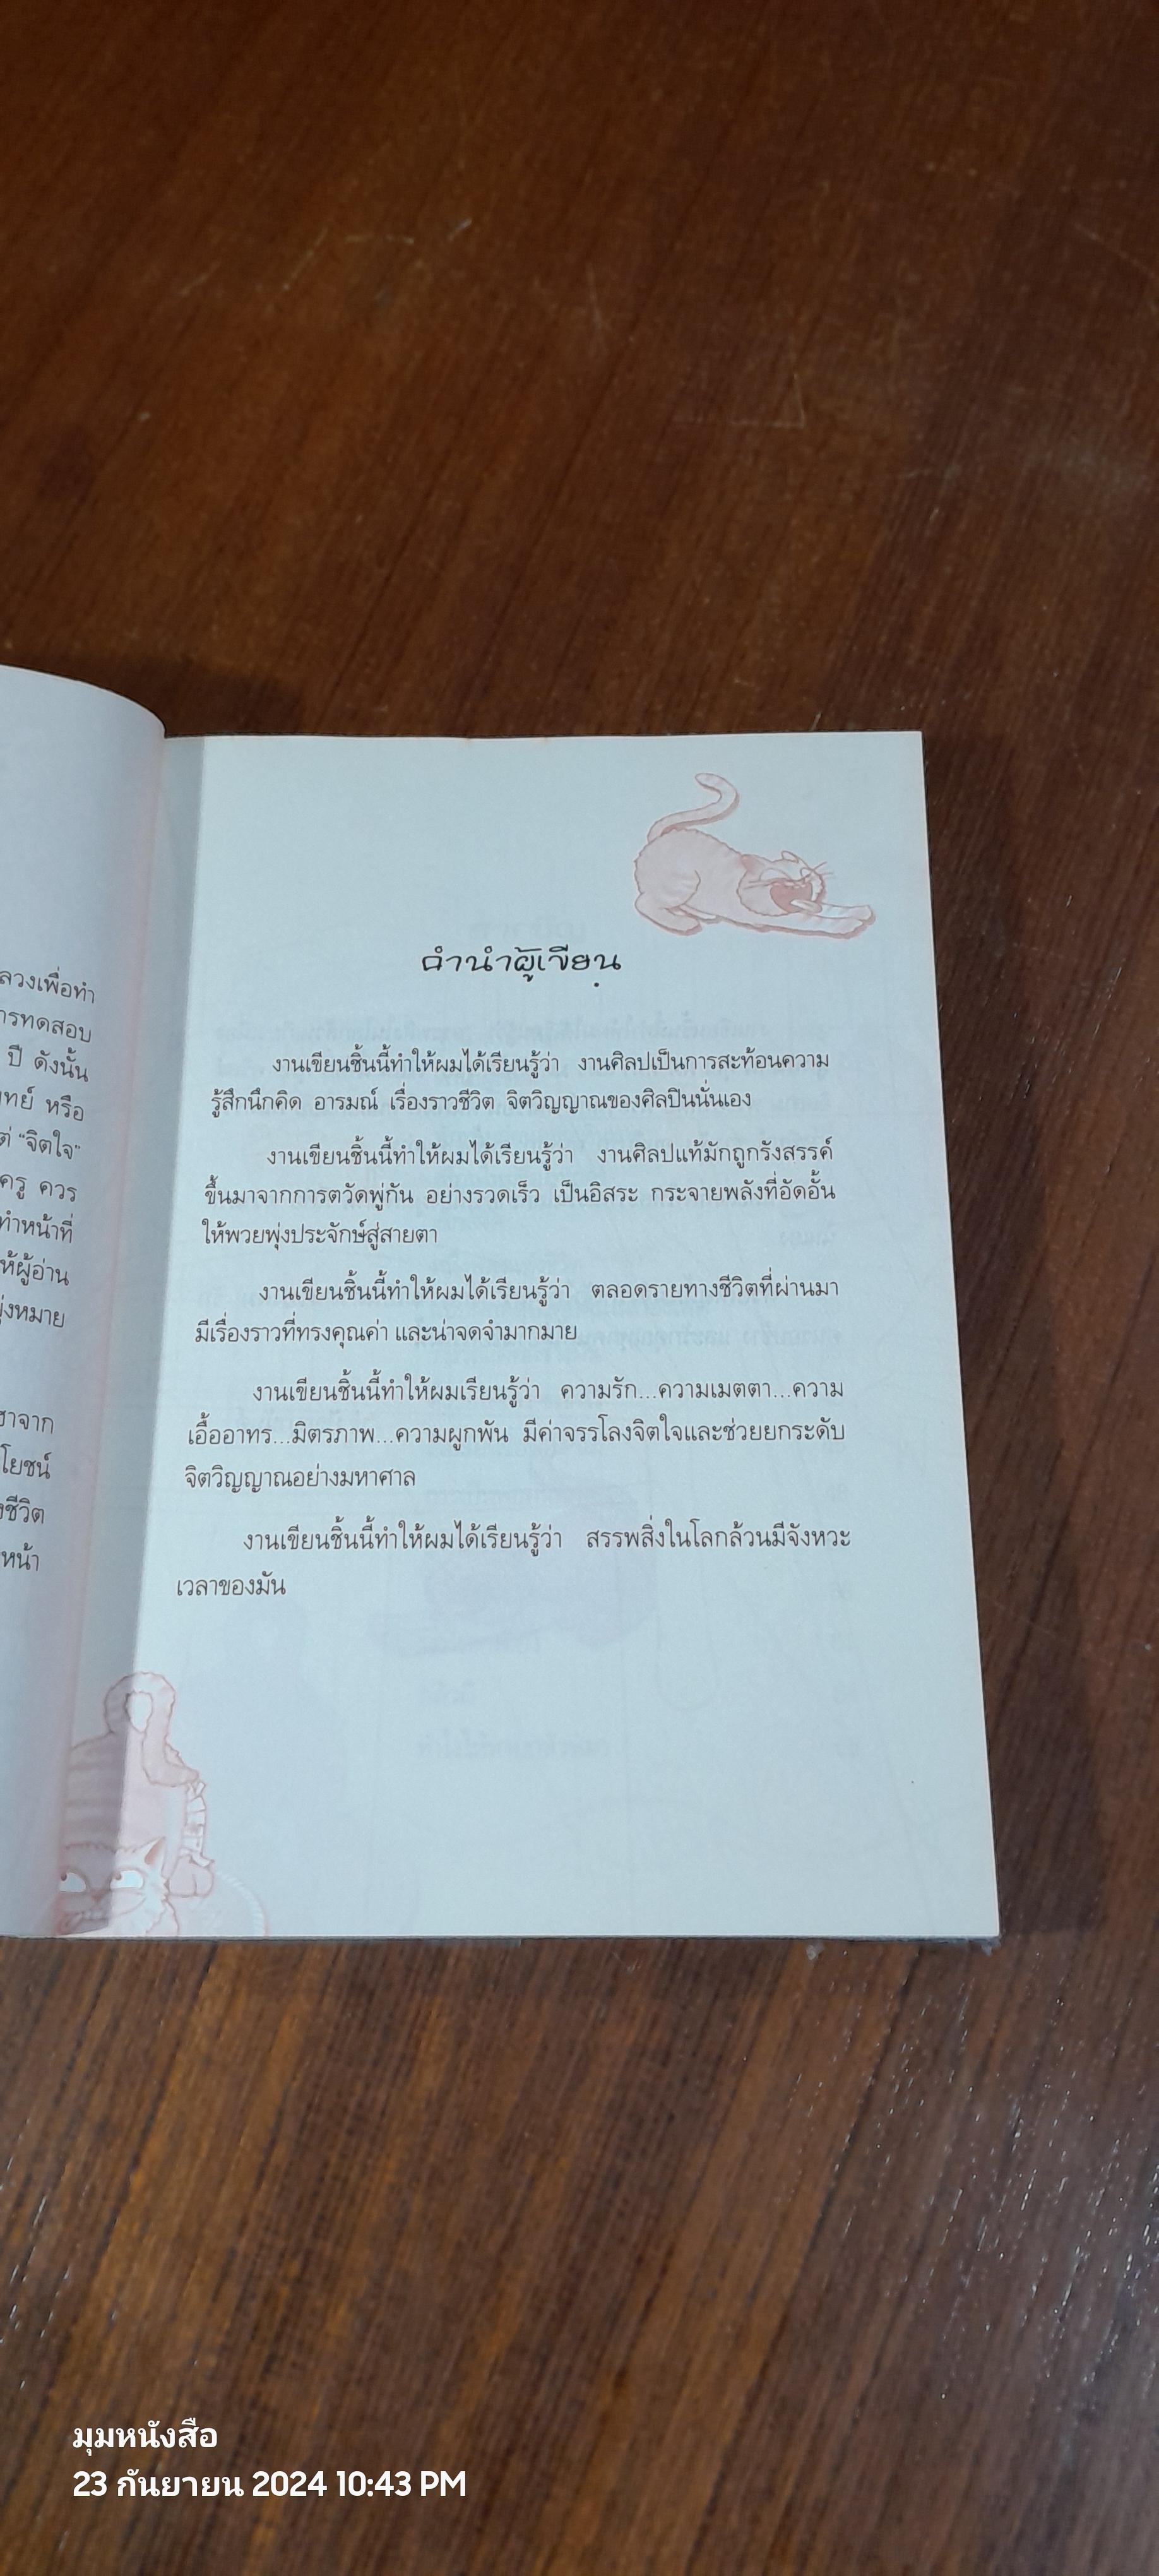 ลวงเพื่อทำ
ารทดสอบ
ปี ดังนั้น
ทย์ หรือ
ต่ "จิตใจ"
ครู ควร
ทำหน้าที่
ห้ผู้อ่าน
มุ่งหมาย
าจาก
โยชน์
ชีวิต
หน้า
คำนำผู้เขียน
งานเขียนชิ้นนี้ทำให้ผมได้เรียนรู้ว่า งานศิลปเป็นการสะท้อนความ
รู้สึกนึกคิด อารมณ์ เรื่องราวชีวิต จิตวิญญาณของศิลปินนั่นเอง
งานเขียนชิ้นนี้ทำให้ผมได้เรียนรู้ว่า งานศิลปแท้มักถูกรังสรรค์
ขึ้นมาจากการตวัดพู่กัน อย่างรวดเร็ว เป็นอิสระ กระจายพลังที่อัดอั้น
ให้พวยพุ่งประจักษ์สู่สายตา
งานเขียนชิ้นนี้ทำให้ผมได้เรียนรู้ว่า ตลอดรายทางชีวิตที่ผ่านมา
มีเรื่องราวที่ทรงคุณค่า และน่าจดจำมากมาย
งานเขียนชิ้นนี้ทำให้ผมเรียนรู้ว่า ความรัก...ความเมตตา...ความ
เอื้ออาทร...มิตรภาพ...ความผูกพัน มีค่าจรรโลงจิตใจและช่วยยกระดับ
จิตวิญญาณอย่างมหาศาล
งานเขียนชิ้นนี้ทำให้ผมได้เรียนรู้ว่า สรรพสิ่งในโลกล้วนมีจังหวะ
เวลาของมัน
มุมหนังสือ
23 กันยายน 2024 10:43 PM